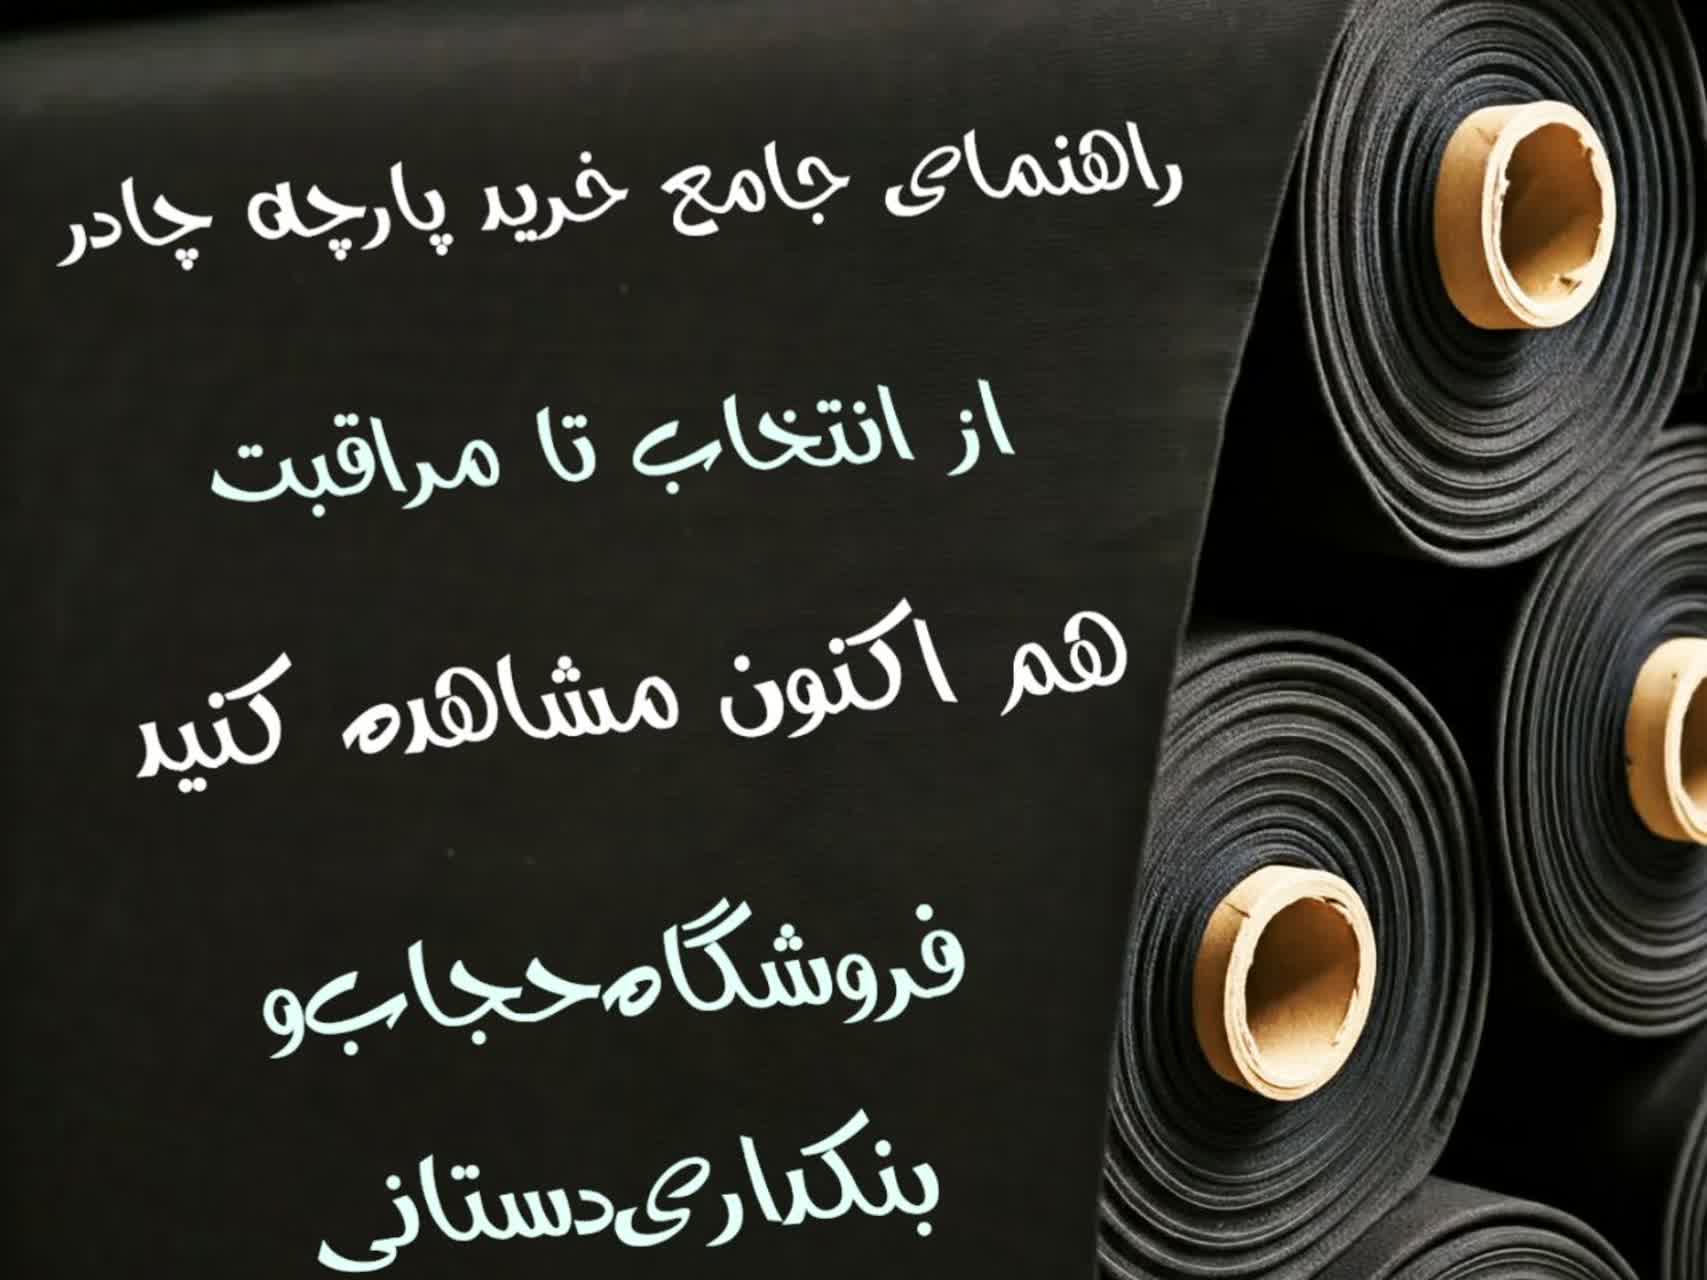 راهنمای جامع خرید پارچه چادر
از انتخاب تا مراقبت
هم اکنون مشاهده کنید
فروشگاه حجاب و
بنکداری دستانی